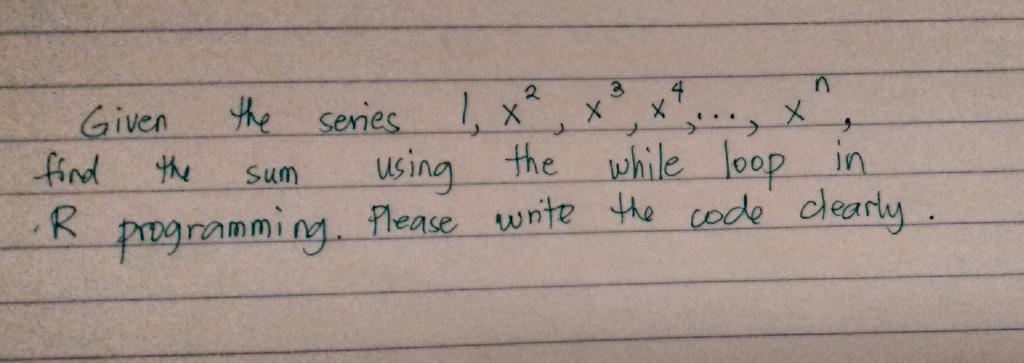 Given the series 1, x², x³, x⁴, ..., xⁿ,
find the sum using the while loop in
R programming. Please write the code clearly.